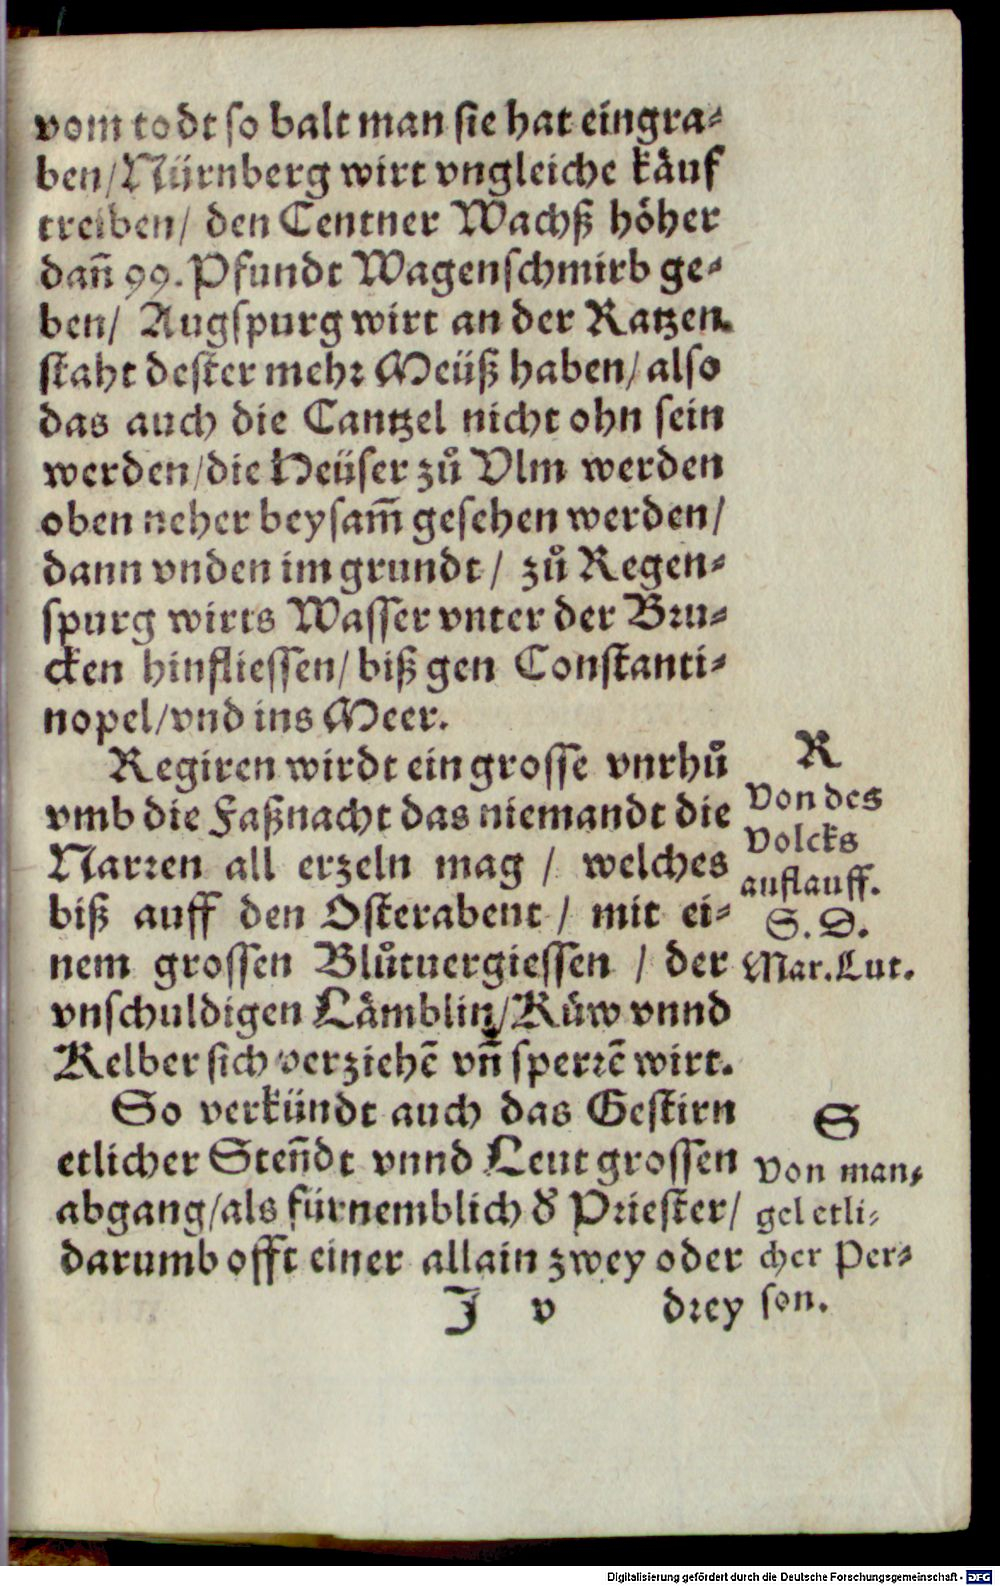 vom todt so balt man sie hat eingra⸗
ben/Nürnberg wirt vngleiche käuf
treiben/ den Centner Wachß höher
dañ 99. Pfundt Wagenschmirb ge⸗
ben/ Augspurg wirt an der Ratzen⸗
staht dester mehr Meüß haben/ also
das auch die Cantzel nicht ohn sein
werden/die Heüser zů Vlm werden
oben neher beysam̃ gesehen werden/
dann vnden im grundt/ zů Regen⸗
spurg wirts Wasser vnter der Bru⸗
cken hinfliessen/ biß gen Constanti⸗
nopel/vnd ins Meer.
Regiren wirdt ein grosse vnrhů
vmb die Faßnacht das niemandt die
Narren all erzeln mag / welches
biß auff den Osterabent / mit ei⸗
nem grossen Blůtuergiessen / der
vnschuldigen Lämblin/Küw vnnd
Kelber sich verziehẽ vñ sperrẽ wirt.
So verkündt auch das Gestirn
etlicher Steñdt vnnd Leut grossen
abgang/als fürnemblich d' Priester/
darumb offt einer allain zwey oder
J v drey
R
Von des
Volcks
auflauff.
S. D.
Mar. Lut.
S
Von man⸗
gel etli⸗
cher Per⸗
son.
Digitalisierung gefördert durch die Deutsche Forschungsgemeinschaft - DFG